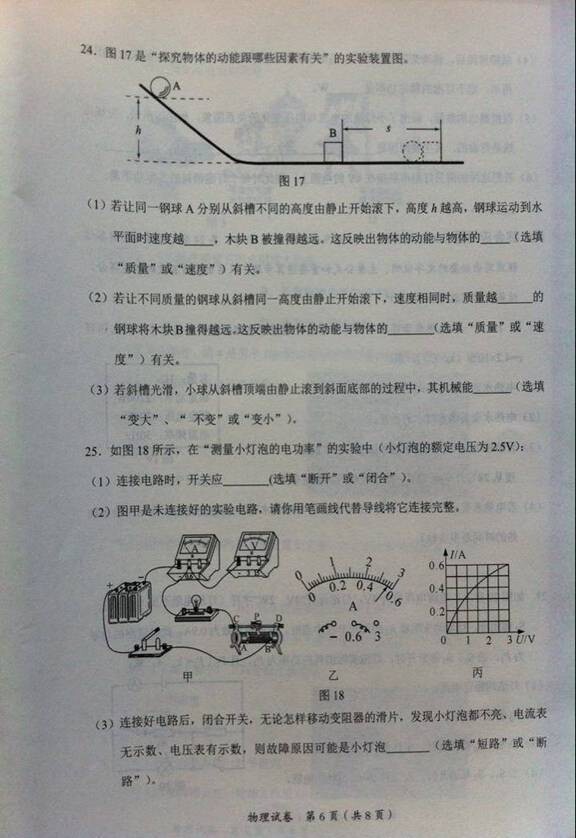 24. 图17是“探究物体的动能跟哪些因素有关”的实验装置图。
A
h
B
s
图17
（1）若让同一钢球A分别从斜槽不同的高度由静止开始滚下，高度h越高，钢球运动到水
平面时速度越____，木块B被撞得越远。这反映出物体的动能与物体的____（选填
“质量”或“速度”）有关。
（2）若让不同质量的钢球从斜槽同一高度由静止开始滚下，速度相同时，质量越____的
钢球将木块B撞得越远。这反映出物体的动能与物体的____（选填“质量”或“速
度”）有关。
（3）若斜槽光滑，小球从斜槽顶端由静止滚到斜面底部的过程中，其机械能____（选填
“变大”、“ 不变”或“变小”）。
25. 如图18所示，在“测量小灯泡的电功率”的实验中（小灯泡的额定电压为2.5V）：
（1）连接电路时，开关应____(选填“断开”或“闭合”）。
（2）图甲是未连接好的实验电路，请你用笔画线代替导线将它连接完整。
A
V
+ −
C P D
A B
甲
0 1 2 3
0 0.2 0.4 0.6
A
− 0.6 3
乙
I/A
0.6
0.4
0.2
0 1 2 3 U/V
丙
图18
（3）连接好电路后，闭合开关，无论怎样移动变阻器的滑片，发现小灯泡都不亮、电流表
无示数、电压表有示数，则故障原因可能是小灯泡____（选填“短路”或“断
路”）。
物理试卷 第6页（共8页）